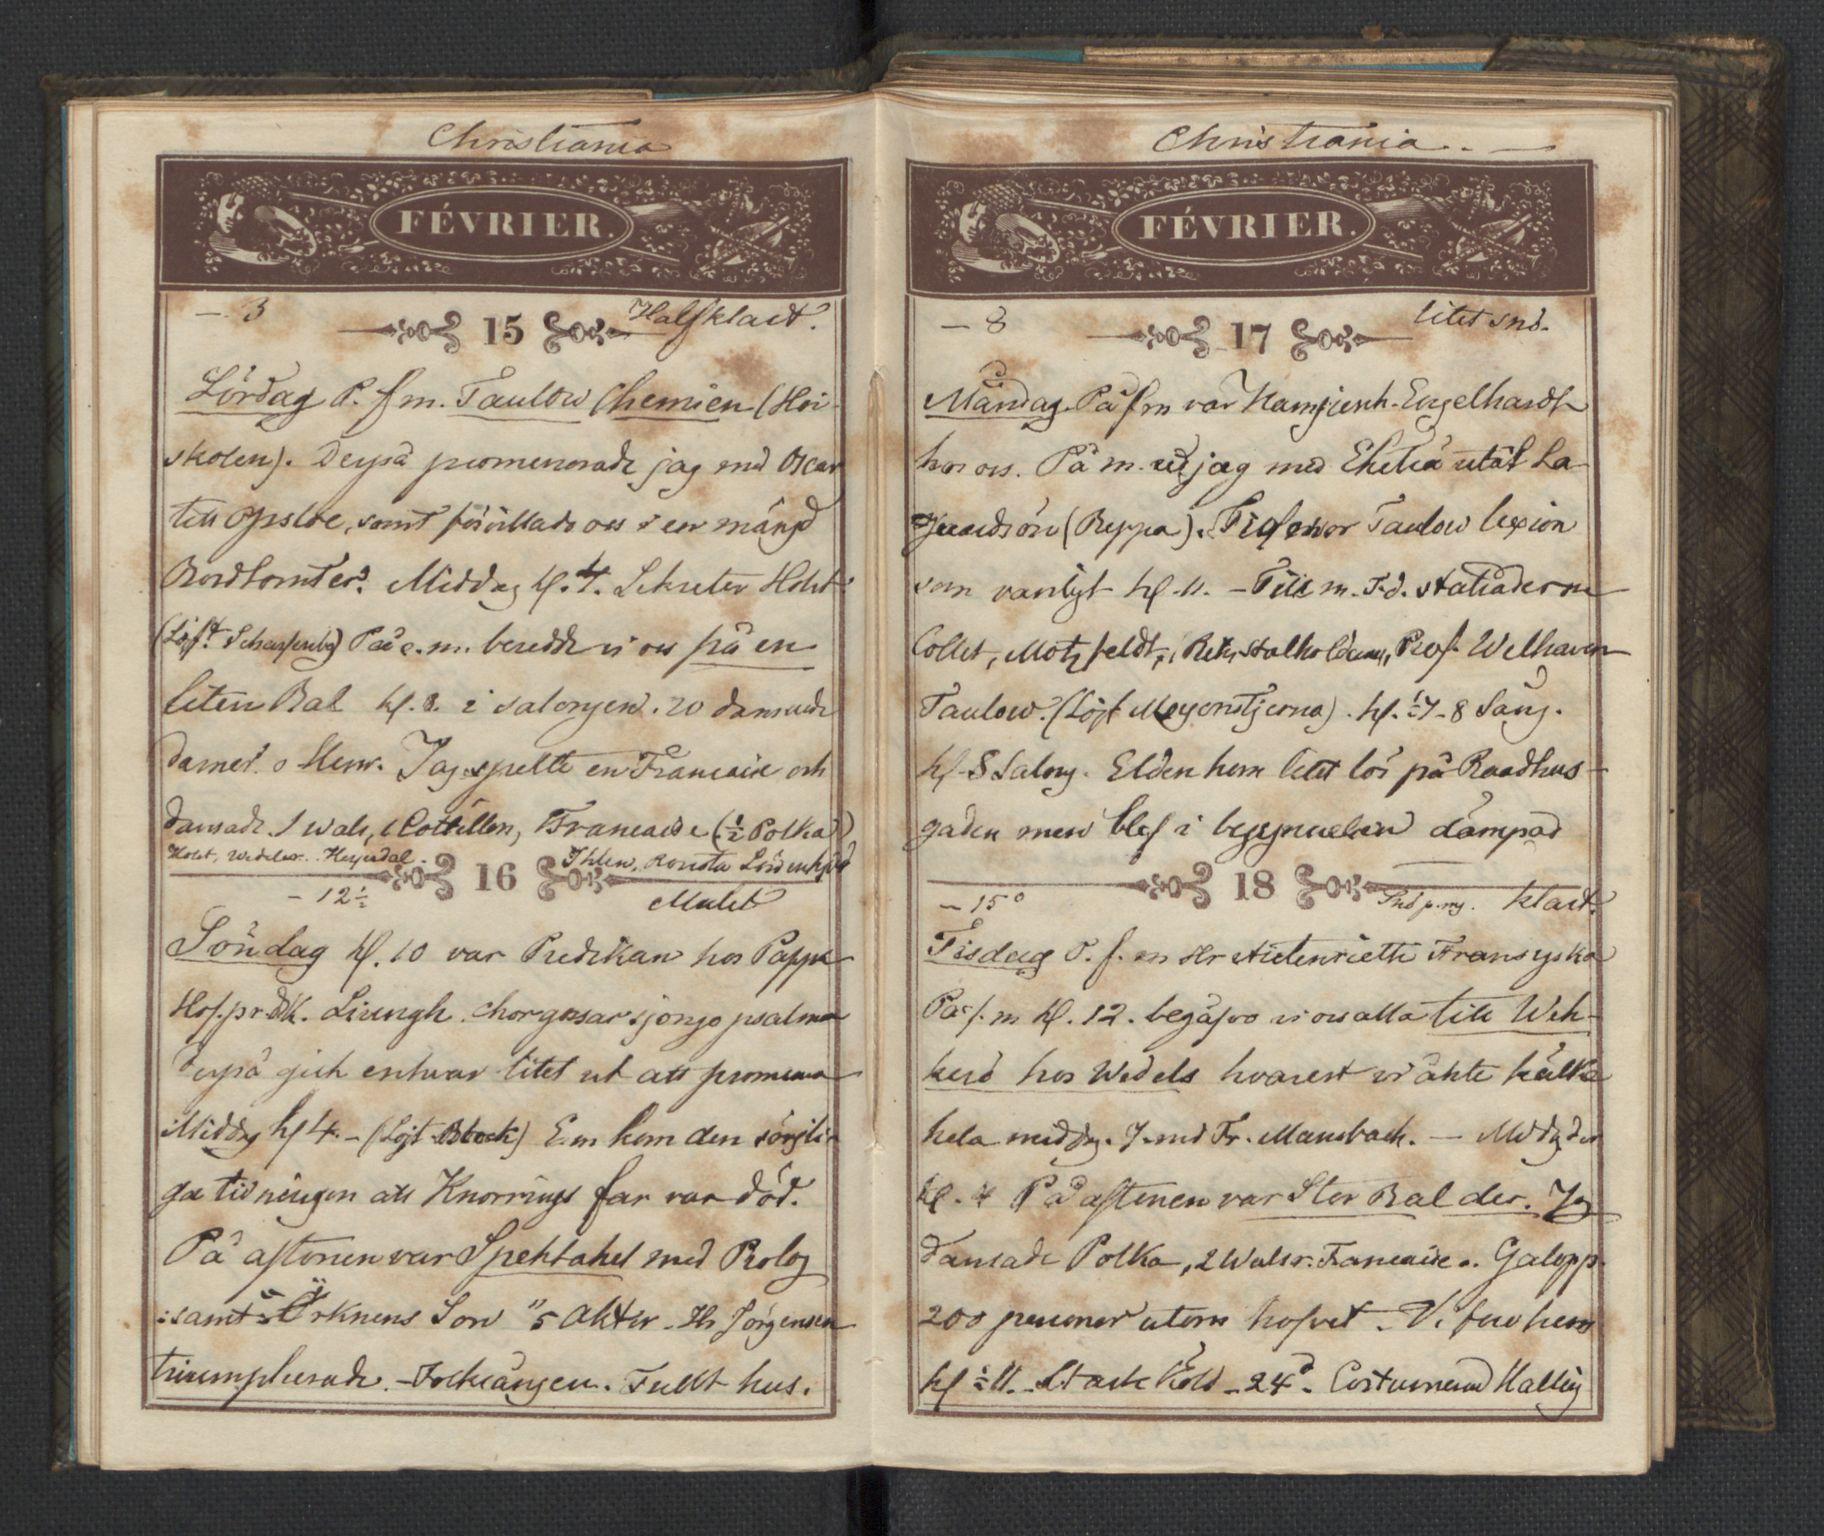 Christiania
FÉVRIER.
- 3 15 Halfklart.
Lördag P. f m. Taulow Chemien (Höi-
skolen). Derpå promenerade jag med Oscar
till Opsloe, samt förvillade oss i en mängd
Bordtomter. Middag kl. 4. Sekreter Holst
(Löjt. Scharfenberg) På e. m. beredde vi oss på en
liten Bal kl. 8. i salongen. 20 dansande
damer o Herrr. Jag spelte en Francaise och
dansade 1 wals, Cottillon, Francaise (½ Polka)
Holst, Wedel Heyerdal. Ihlen,
16
- 12½ Mulet
Söndag kl. 10 var Predikan hos Pappa
Hof.pr.dk. Liungh. Chorgossar sjöngo psalmer
derpå gick enhvar litet ut att promenera
Middag kl 4. - (Löjt Block) E m kom den sörgli-
ga tidningen att Knorrings far var död.
På aftonen var Spektakel med Prolog
samt "Örknens Son" 5 Akter. Hr Jörgensen
triumpherade. - Folksången. Fullt hus.
Christiania. -
FÉVRIER.
- 8 17 litet snö.
Måndag. På f m var Kamjunk. Engelhardt
hos oss. På m. red jag med utåt La-
(Beppa). Taulow lexion
som vanligt kl. 11. - Till m. St.råderne
Collet, Motzfeldt, Rikstathollaren, Prof. Welhaven
Taulow. (Löjt Meyerstjerna). kl. ½7-8 Sång.
kl. 8 Salong. Elden kom litet lös på Raadhus-
gaden men blef i begynnelsen dämpad
18
- 15° Snö p. mg. klart.
Tisdag P. f. m Hr Autenrieth Fransyska
På f. m kl. 12. begåfvo vi oss alla till Wek-
kerö hos Wedels hvarest vi åkte kälke
hela middag. J. med Fr. Mansbach. - Middag der
kl. 4 På aftonen var Stor Bal der. Jag
dansade Polka, 2 Walsr. Francaise o. Galopp.
200 personer utom hofvet. Vi foro hem
kl ½ 11. Stark Köld - 24°. Costumerad Halling